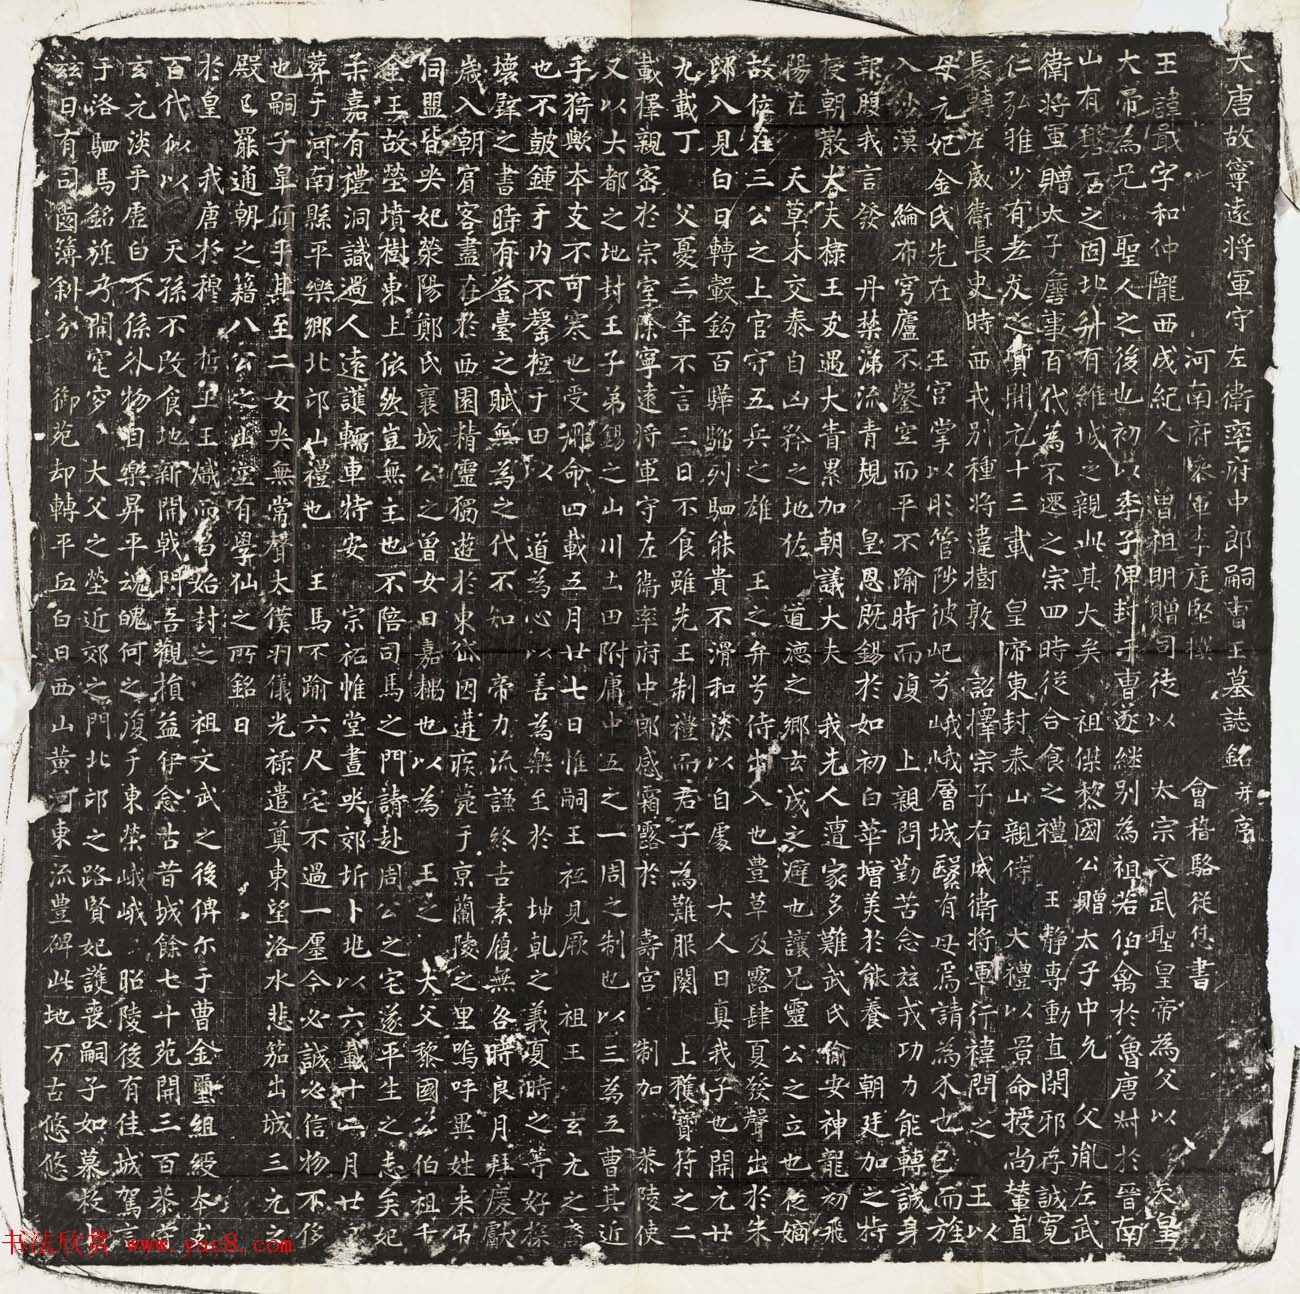 大唐故寧遠將軍守左衛率府中郎嗣曹王墓誌銘并序
河南府參軍李庭堅撰 會稽駱從 書
王諱戢字和仲隴西成紀人 曾祖明贈司徒以 太宗文武聖皇帝為父以 天皇
大帝為兄 聖人之後也初以季子俾封于曹遂継別為祖若伯禽於魯唐州於晉南
山有 石之固北 有維城之親此其大矣 祖傑黎國公贈太子中允 父胤左武
衛將軍贈太子詹事百代為不遷之宗四時從合食之禮 王靜專動直閑邪存誠寬
仁弘雅少有老 之 開元十三載 皇帝東封泰山親 大禮以景命授尚輦直
長轉左威衛長史時西戎別種將違樹敦 詔擇宗子右威衛將軍行禕問之 王以
母元妃金氏先在 王宮掌以彤管陟彼屺兮峨峨層城 有母焉請為 也 而旌
入沙漠 綸布穹廬不鑿空而平不踰時而復 上親問勤苦念茲戎功力能轉誠身
報 我言發 丹禁涕流青規 皇恩既錫於如初白華增美於能養 朝廷加之特
授朝散大夫棣王友遇大青累加朝議大夫 我先人遭家多難武氏偷安神龍初飛
陽在 天草木交泰自凶 之地佐 道德之鄉玄成之避也讓兄靈公之立也 嫡
故位在三公之上官守五兵之雄 王之弁兮侍出入也豊草及露肆夏發聲出於朱
邸入見白日轉轂鈞百驊騮列駟能貴不滑和淡以自處 大人曰真我子也開元廿
九載丁 父憂三年不言三日不食雖先王制禮而君子為難服闋 上獲寶符之二
載擇親密於宗室除寧遠將軍守左衛率府中郎感霜露於 壽宮 制加 恭陵使
又以大都之地封王子弟錫之山川土田附庸中五之一周之制也以三為五曹其近
乎猗歟本支不可寒也受 命四載五月廿七日惟嗣王 見厥 祖王 玄元之
也不鼓鍾于內不 于田以 道為心以善為樂至於 坤乹之義夏時之等好
壞 之書時有登臺之賦無為之代不知 帝力流謙終吉素履無咎時良月拜慶獻
歲入朝賓客盡在於西園精靈獨遊於東岱因遘疾薨于京蘭陵之里嗚呼異姓来吊
同盟皆哭妃滎陽鄭氏襄城公之曾女曰嘉耦也以為 王之 大父黎國公伯祖千
金王故塋墳樹東上依然豈無主也不陪司馬之門請赴周公之宅遂平生之志矣妃
柔嘉有禮洞識過人遠護輀車特安 宗祏帷堂晝哭郊圻卜兆以六載十二月廿
葬于河南縣平樂鄉北邙山禮也 王馬不踰六尺宅不過一廛今必誠必信物不
也嗣子皐 乎其至二女哭無常聲太僕羽儀光祿遣奠東望洛水悲笳出城三元之
殿 罷通朝之籍八公之山空有學仙之所銘曰
於皇 我唐於穆 哲王王熾而昌始封之 祖文武之後俾尒于曹金璽組綬本支
百代似以 天孫不改食地新開戟門喜觀損益伊念古昔城餘七十苑開三百恭
玄元淡乎虛白不係外物自樂昇平魂魄何之復于東 峨峨 昭陵後有佳城駕言
于洛駟馬銘旌乃開宅 大父之塋近郊之門北邙之路賢妃護喪嗣子如慕
茲日有司鹵簿斜分 御苑却轉平丘白日西山黃河東流豊碑此地万古悠悠
书法欣赏 www.yac8.com